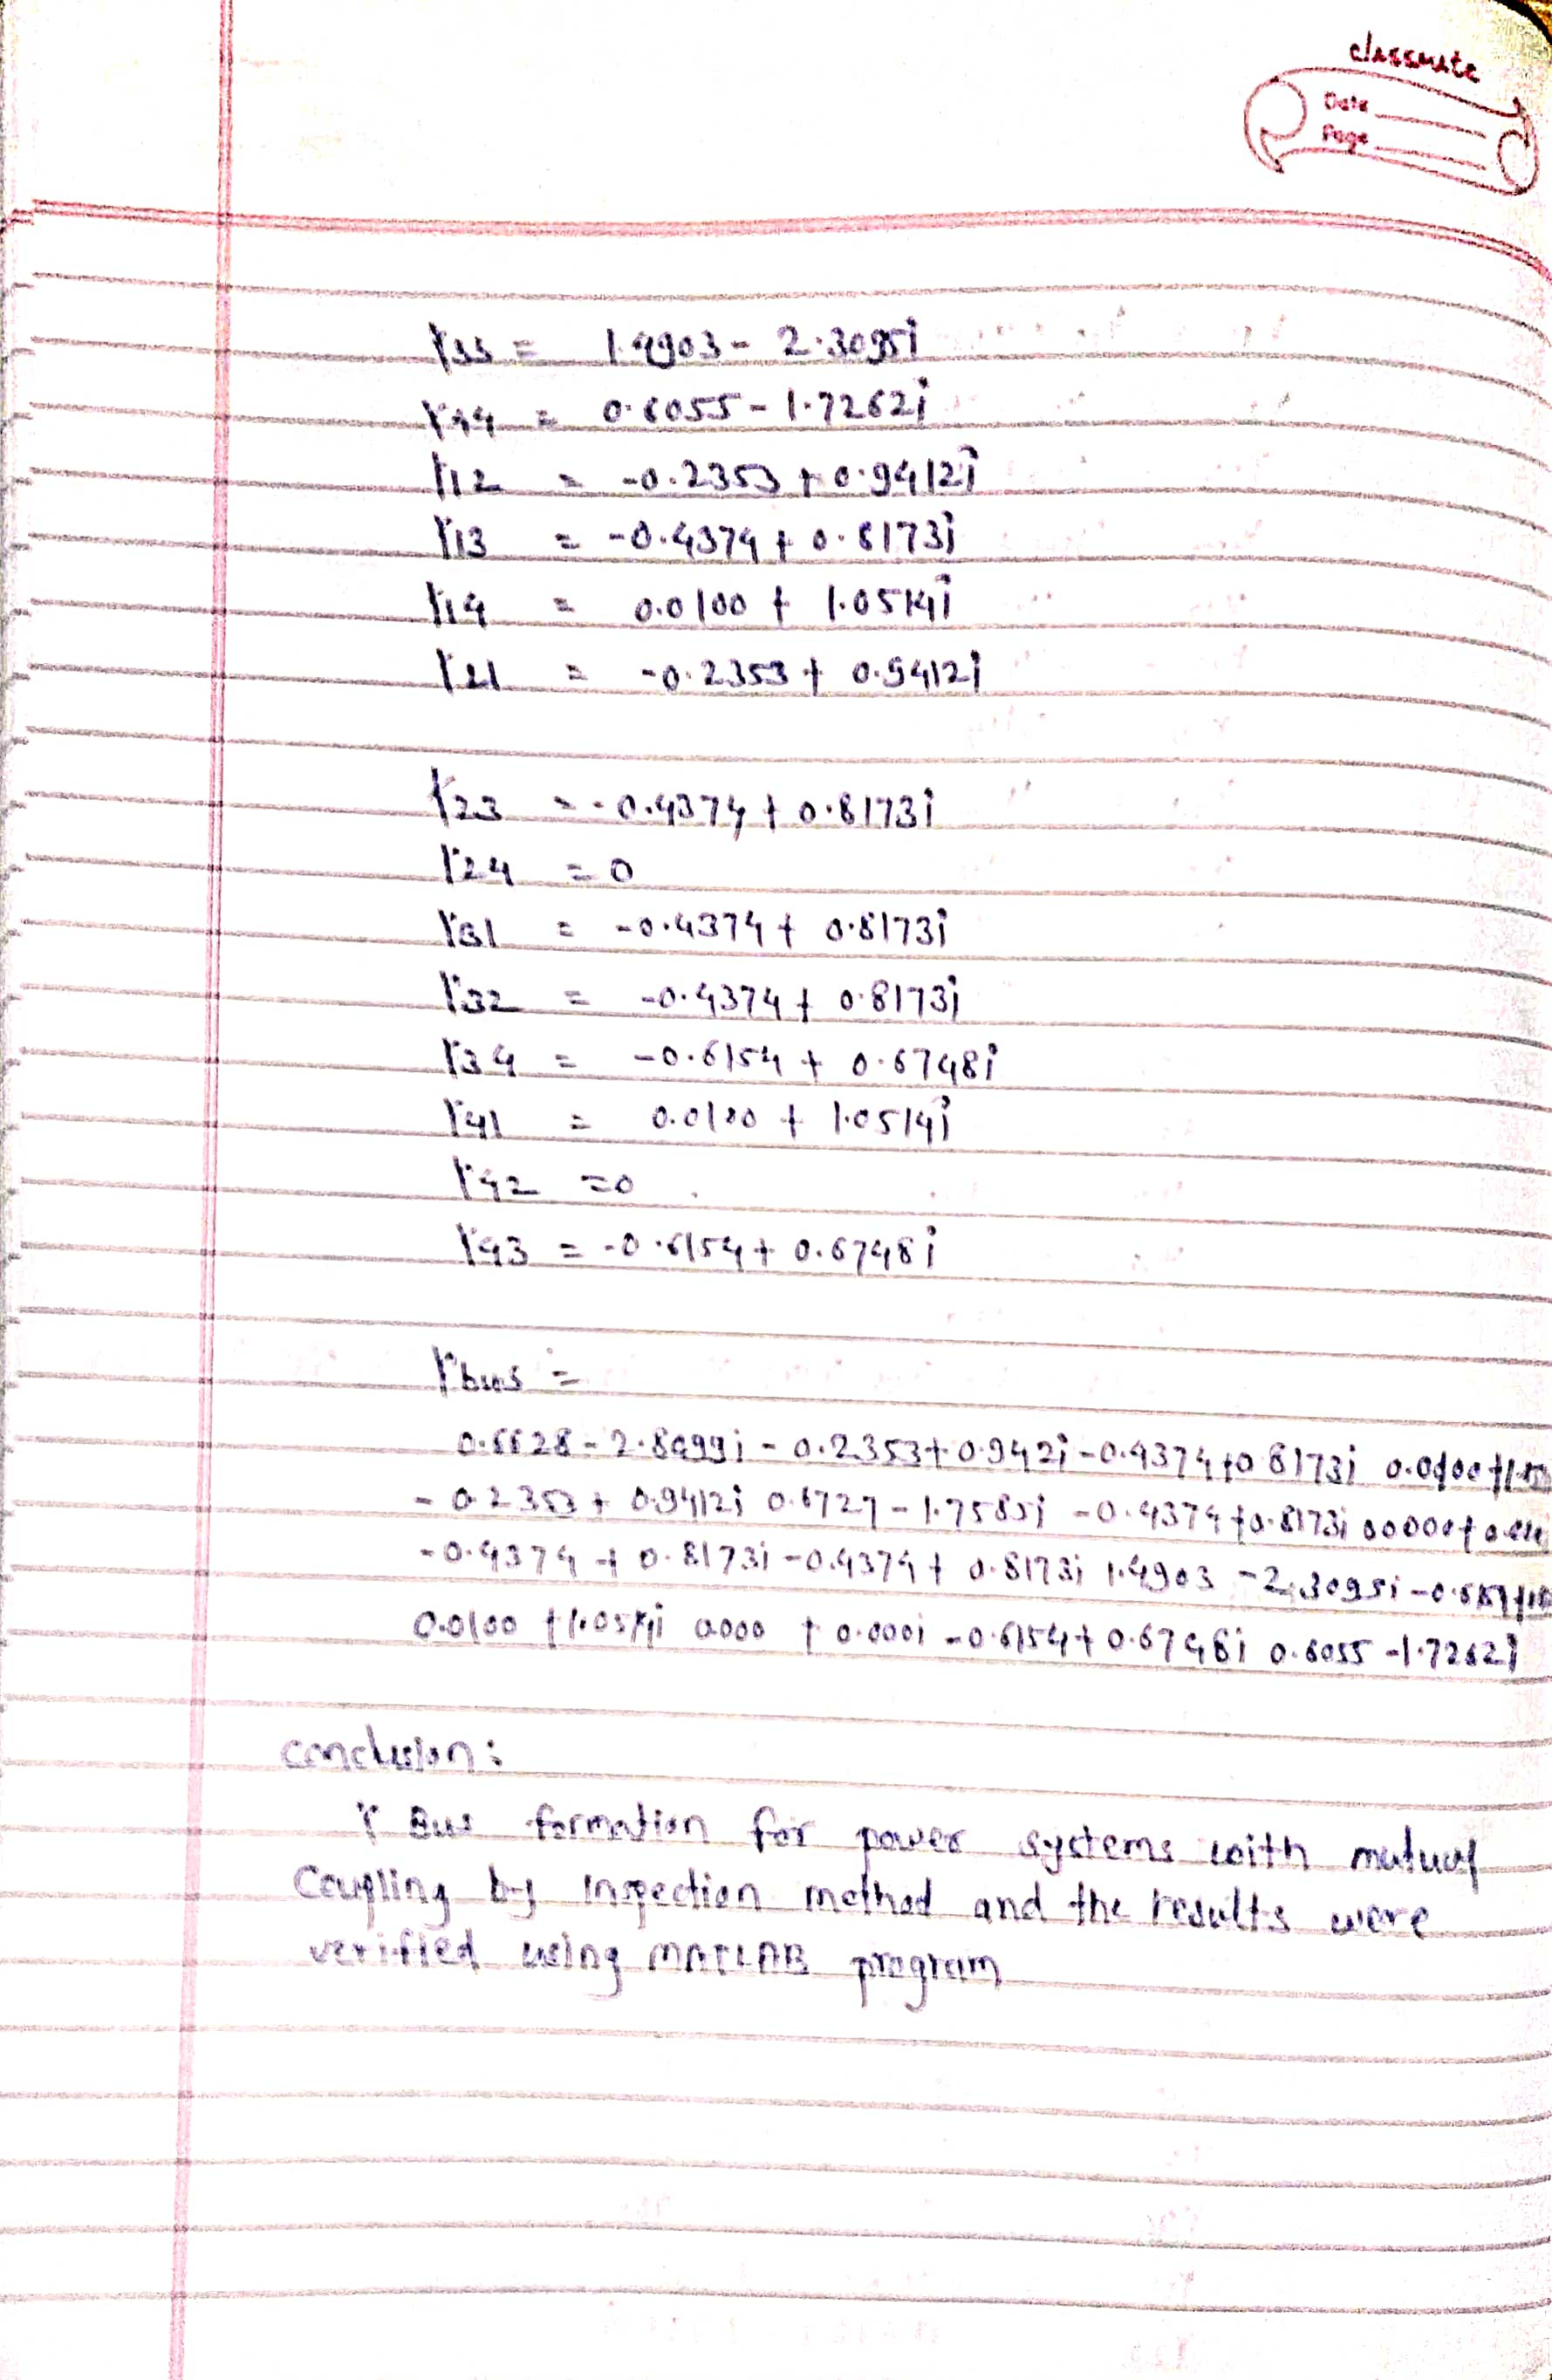 classmate
Date
Page
Y33 = 1.4903 - 2.3095i
Y44 = 0.6055 - 1.7262i
Y12 = -0.2353 + 0.9412i
Y13 = -0.4374 + 0.8173i
Y14 = 0.0100 + 1.0514i
Y21 = -0.2353 + 0.9412i
Y23 = -0.4374 + 0.8173i
Y24 = 0
Y31 = -0.4374 + 0.8173i
Y32 = -0.4374 + 0.8173i
Y34 = -0.6154 + 0.6748i
Y41 = 0.0100 + 1.0514i
Y42 = 0
Y43 = -0.6154 + 0.6748i
Ybus =
0.6628 - 2.8099i - 0.2353 + 0.942i -0.4374 +0.8173i
-0.2353 + 0.9412i 0.6727 - 1.7585i -0.4374 +0.8173i
-0.4374 + 0.8173i -0.4374 + 0.8173i 1.4903 -2.3095i
0.0100 +1.0514i 0.000 + 0.000i -0.6154 + 0.6748i 0.6055 -1.7262i
conclusion:
Y Bus formation for power systems with mutual
Coupling by inspection method and the results were
verified using MATLAB program